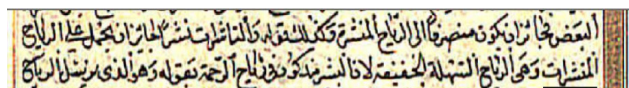 البعض فجائز ان يكون منصرفا الى الرياح المنشرة وكذلك قوله والناشرات نشرا لجائز ان يحمل على الرياح
المنشرات وهي الرياح السهلة الخفيفة لان البشر مذكور في رياح الرحمة بقوله وهو الذي يرسل الرياح